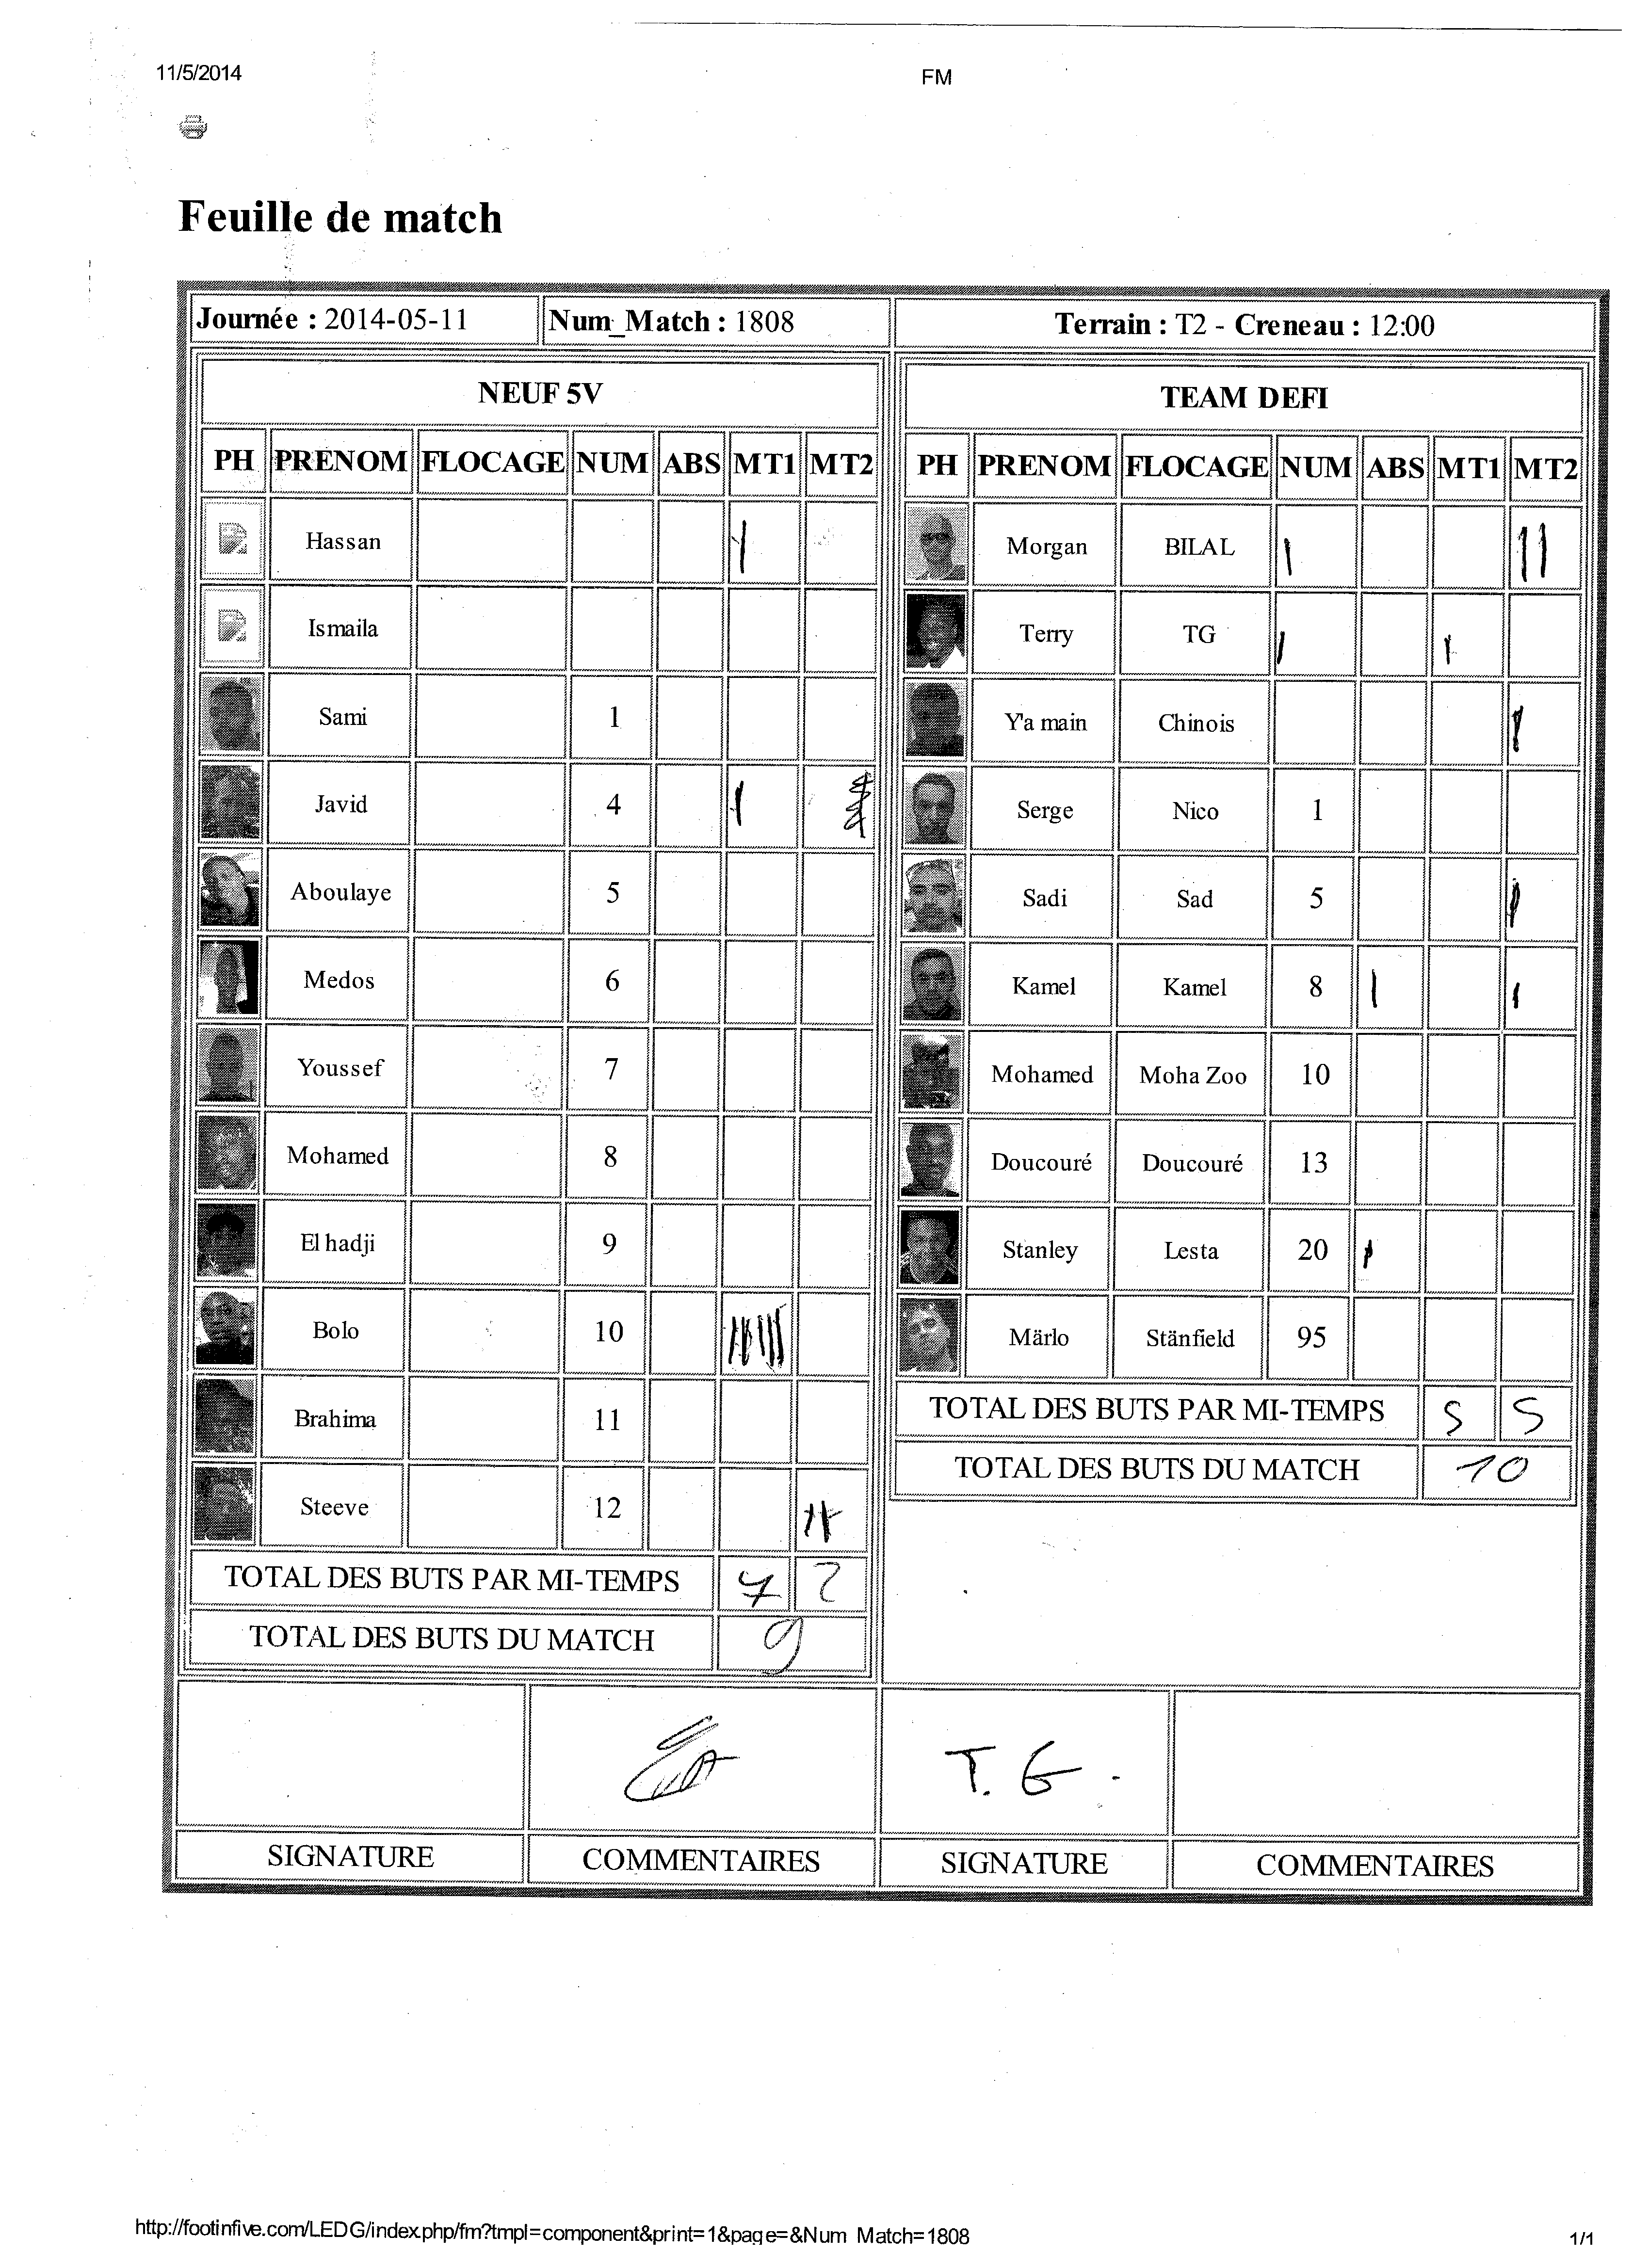 11/5/2014 FM
Feuille de match
Journée : 2014-05-11 Num_Match : 1808 Terrain : T2 - Creneau : 12:00
NEUF 5V
PH PRENOM FLOCAGE NUM ABS MT1 MT2
Hassan
Ismaila
Sami 1
Javid 4
Aboulaye 5
Medos 6
Youssef 7
Mohamed 8
El hadji 9
Bolo 10
Brahima 11
Steeve 12
TOTAL DES BUTS PAR MI-TEMPS 7 2
TOTAL DES BUTS DU MATCH 9
TEAM DEFI
PH PRENOM FLOCAGE NUM ABS MT1 MT2
Morgan BILAL
Terry TG
Y'a main Chinois
Serge Nico 1
Sadi Sad 5
Kamel Kamel 8
Mohamed Moha Zoo 10
Doucouré Doucouré 13
Stanley Lesta 20
Märlo Stänfield 95
TOTAL DES BUTS PAR MI-TEMPS 5 5
TOTAL DES BUTS DU MATCH 10
T. G.
SIGNATURE COMMENTAIRES SIGNATURE COMMENTAIRES
http://footinfive.com/LEDG/index.php/fm?tmpl=component&print=1&page=&Num_Match=1808 1/1